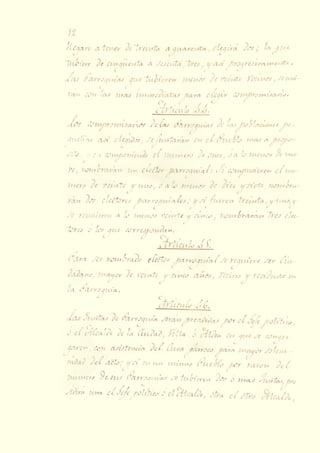 12
llegare a tener de treinta a quarenta, elegirá dos; la que
tubiere de cinquenta a sesenta, tres, y así progresivamente.
Las Parroquias que tubieren menos de veinte vecinos, se uni-
rán con las más inmediatas para elegir compromisario.
Artículo 44.
Los compromisarios de las Parroquias de las poblaciones pe-
queñas así elegidos, se juntarán en el Pueblo mas a propo-
sito, y en componiendo el numero de once, ó a lo menos de nue-
ve, nombrarán un elector parroquial: si compusieren el nu-
mero de veinte y uno, ó a lo menos de diez y siete nombra-
rán dos electores parroquiales; y si fueren treinta, y uno, y
se reunieren á lo menos veinte y cinco, nombrarán tres elec-
tores ó los que correspondan.
Artículo 45.
Para ser nombrado elector parroquial se requiere ser Ciu-
dadano, mayor de veinte y cinco años, vecino y residente en
la Parroquia.
Artículo 46.
Las Juntas de Parroquia serán presididas por el Jefe político,
ó el Alcalde de la Ciudad, Villa ó Aldea en que se congre-
garen, con asistencia del Cura párroco para mayor solem-
nidad del acto; y si en un mismo Pueblo por razon del
numero de sus Parroquias se tubieren dos ó mas Juntas, pre-
sidirá una el Jefe político ó el Alcalde, otra el otro Alcalde,